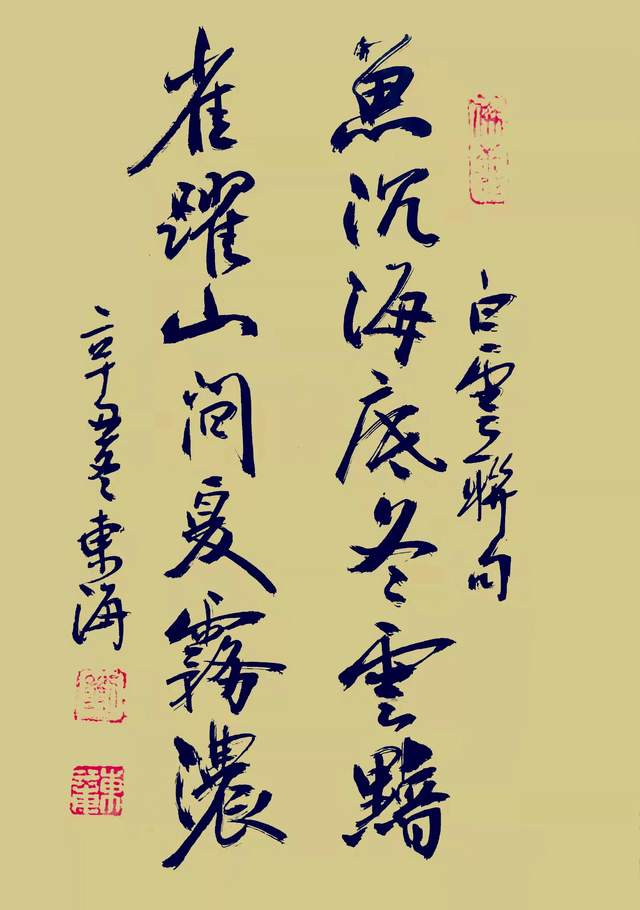 白雲聯句
魚沉海底冬雲黯
雀躍山間夏霧濃
辛丑冬東海